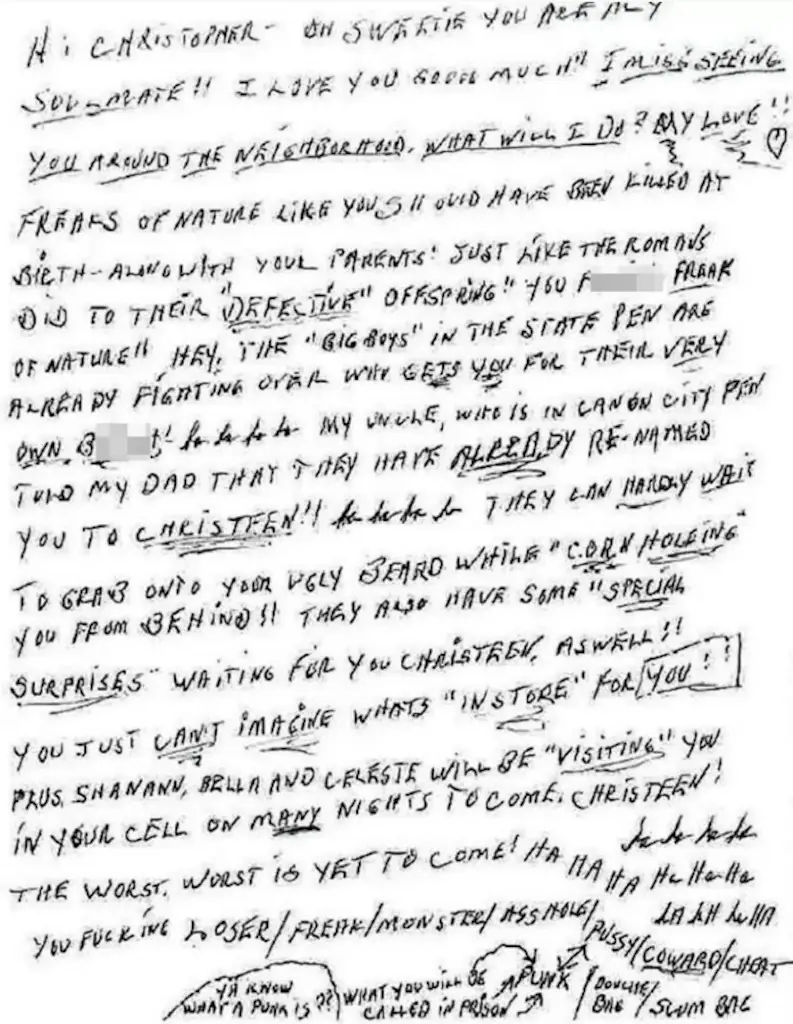 Hi CHRISTOPHER - OH SWEETIE YOU ARE MY
SOULMATE!! I LOVE YOU MUCH!! I MISS SEEING
YOU AROUND THE NEIGHBORHOOD. WHAT WILL I DO? MY LOVE!!
FREAKS OF NATURE LIKE YOU SHOULD HAVE BEEN KILLED AT
BIRTH - ALONG WITH YOUR PARENTS! JUST LIKE THE ROMANS
DID TO THEIR "DEFECTIVE" OFFSPRING!! YOU F FREAK
OF NATURE!! HEY, THE "BIG BOYS" IN THE STATE PEN ARE
ALREADY FIGHTING OVER WHO GETS YOU FOR THEIR VERY
OWN B! ha ha ha ha MY UNCLE, WHO IS IN CANON CITY PEN
TOLD MY DAD THAT THEY HAVE ALREADY RE-NAMED
YOU TO CHRISTEEN!! ha ha ha ha THEY CAN HARDLY WAIT
TO GRAB ONTO YOUR UGLY BEARD WHILE "CORN HOLEING"
YOU FROM BEHIND!! THEY ALSO HAVE SOME "SPECIAL
SURPRISES" WAITING FOR YOU CHRISTEEN, ASWELL!!
YOU JUST CAN'T IMAGINE WHATS "INSTORE" FOR YOU!!
PLUS, SHANANN, BELLA AND CELESTE WILL BE "VISITING" YOU
IN YOUR CELL ON MANY NIGHTS TO COME, CHRISTEEN!
ha ha ha ha
THE WORST, WORST IS YET TO COME! HA HA HA Ha Ha Ha
YOU FUCKING LOSER/FREAK/MONSTER/ASSHOLE/
PUSSY/COWARD/CHEAT
A PUNK /DOUCHE BAG /SCUM BAG
YA KNOW
WHAT A PUNK IS??
WHAT YOU WILL BE
CALLED IN PRISON